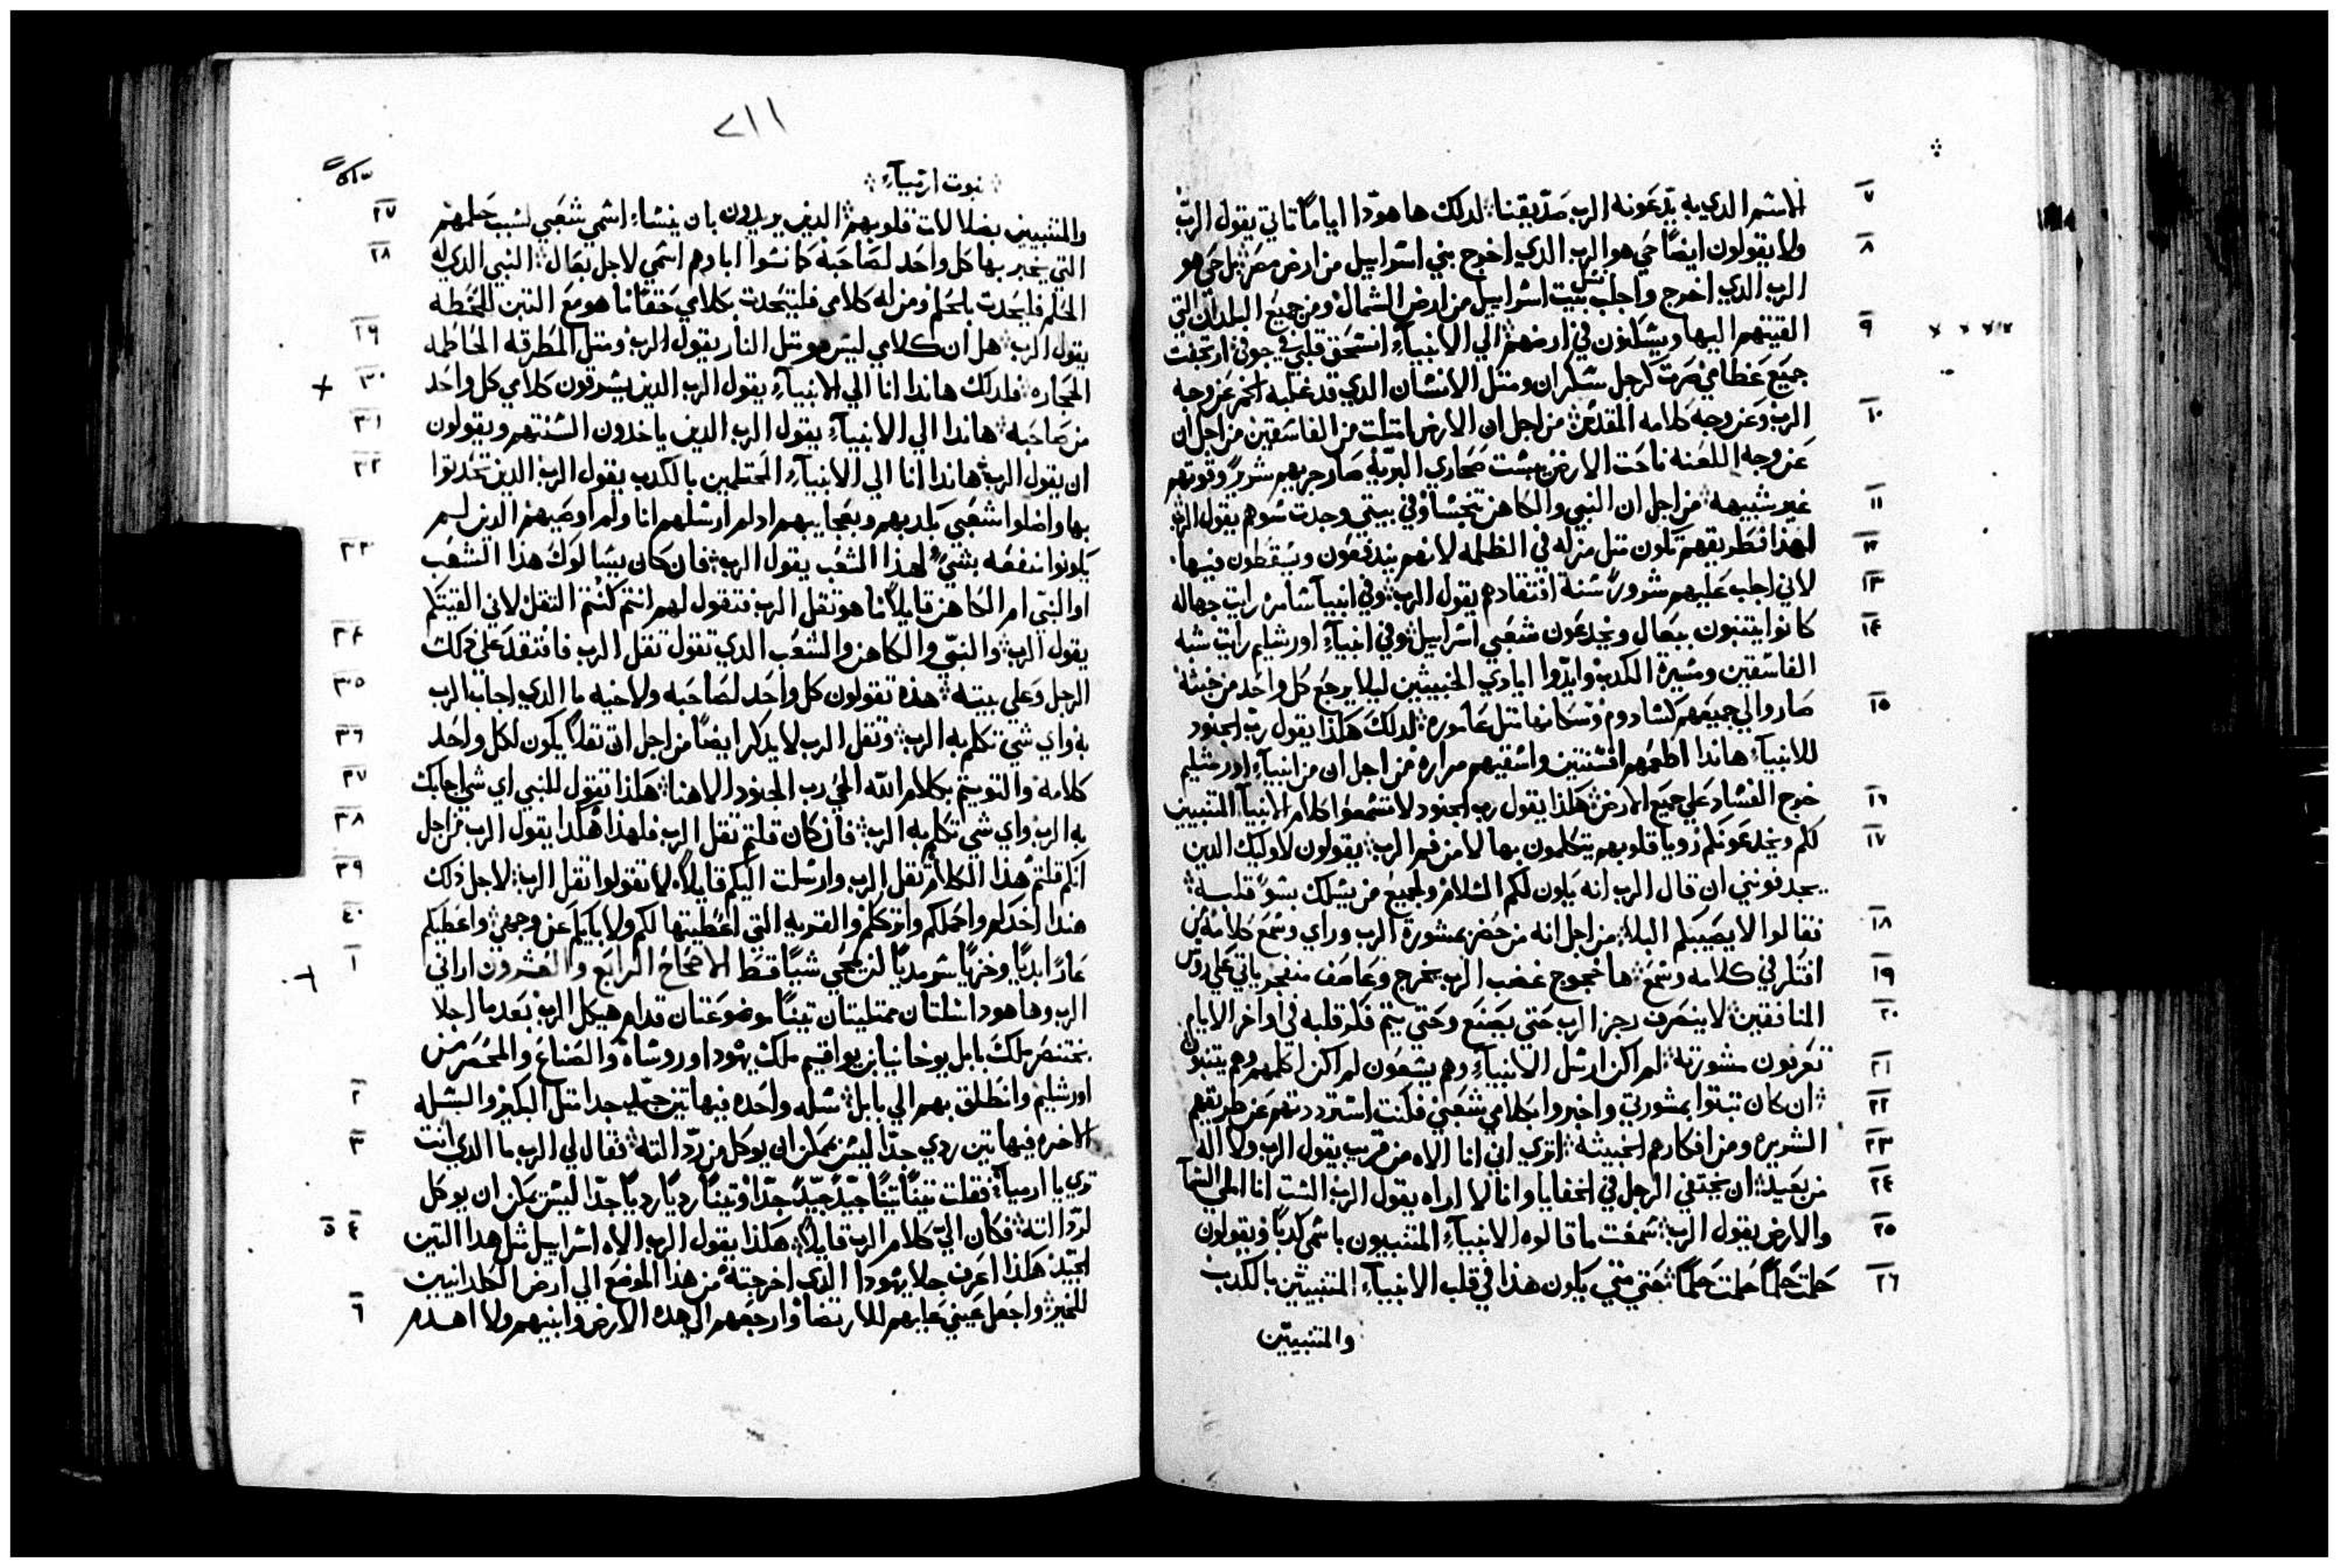 الاسم الدي به يدعونه الرب صديقنا لدلك ها هودا اياما تاتي يقول الرب ٧
ولا يقولون ايضا حي هو الرب الدي اخرج بني اسراييل من ارض مصر بل حي هو ٨
الرب الدي اخرج واجلب نسل بيت اسراييل من ارض الشمال ومن جميع البلدان التي
القيتهم اليها ويسكنون في ارضهم الي الانبياء انسحق قلبي في جوفي ارتجفت ٩
جميع عظامي صرت كرجل سكران ومتل الانسان الدي قد غلبه الخمر عن وجه
الرب وعن وجه كلامه المقدس من اجل ان الارض امتلت من الفاسقين من اجل ان ١٠
عن وجه اللعنه ناحت الارض يبست صحاري البريه صار جريهم شريرا وقوتهم
غير شبيهه من اجل ان النبي والكاهن تنجسا وفي بيتي وجدت سوهم يقول الرب ١١
لهذا فطريقهم تكون متل مزله في الظلمه لانهم يندفعون ويسقطون فيها ١٢
لاني اجلب عليهم شرورا سنة افتقادهم يقول الرب وفي انبيآ سامره رايت جهاله ١٣
كانوا يتنبون ببعال ويخدعون شعبي اسراييل وفي انبياء اورشليم رايت شبه ١٤
الفاسقين ومسيرة الكدب وايدوا ايادي الخبيثين ليلا يرجع كل واحد من خبثه
صاروا لي جميعهم كسادوم وسكانها متل عاموره لدلك هكذا يقول رب الجنود ١٥
للانبيآ هاندا اطعمهم افسنتين واسقيهم مراره من اجل ان من انبياء اورشليم
خرج الفساد علي جميع الارض هكذا يقول رب الجنود لا تسمعوا كلام الانبيآ المتنبيين ١٦
لكم ويخدعونكم رويا قلوبهم يتكلمون بها لا من فم الرب يقولون لاوليك الدين ١٧
يجدفونني ان قال الرب انه يكون لكم السلام ولجميع من يسلك بسو قلبه
فقالوا لا يصيبكم البلا من اجل انه من حضر بمشورة الرب وراي وسمع كلامه من ١٨
افتكر في كلامه وسمع ها خجوج غضب الرب يخرج وعاصف منفجر ياتي علي روس ١٩
المنافقين لا ينصرف رجز الرب حتي يصنع وحتي يتم فكر قلبه في اواخر الايام ٢٠
تعرفون مشورته لم اكن ارسل الانبياء وهم يسعون لم اكن اكلمهم وهم يتنبون ٢١
ان كان تبتوا بمشورتي واخبروا بكلامي شعبي فكنت استرددتهم عن طريقهم ٢٢
الشريره ومن افكارهم الخبيثه اتري اني انا الاه من قريب يقول الرب ولا اله ٢٣
من بعيد ان يختفي الرجل في الخفايا وانا لا اراه يقول الرب الست انا املي السمآ ٢٤
والارض يقول الرب سمعت ما قالوه الانبياء المتنبيون باسمي كدبا ويقولون ٢٥
حلمت حلما حلمت حلما حتي متي يكون هذا في قلب الانبياء المتنبيين بالكدب ٢٦
والمتنبيين
٢١١
نبوت ارميآء
والمتنبيين بضلالات قلوبهم الدين يريدون بان ينسا اسمي شعبي لسبب حلمهم ٢٧
التي يخبر بها كل واحد لصاحبه كما نسوا اباوهم اسمي لاجل بعال النبي الدي له ٢٨
الحلم فليحدت بالحلم ومن له كلامي فليتحدت بكلامي حقا ما هو مع التبن للحنطه
يقول الرب هل ان كلامي ليس هو متل النار يقول الرب ومتل المطرقه الحاطمه ٢٩
الحجاره فلدلك هاندا انا الي الانبياء يقول الرب الدين يسرقون كلامي كل واحد ٣٠
من صاحبه هاندا الي الانبياء يقول الرب الدين ياخدون السنتهم ويقولون ٣١
ان يقول الرب هاندا انا الي الانبياء المحتلمين بالكدب يقول الرب الدين تحدتوا ٣٢
بها واضلوا شعبي بكدبهم وبعجايبهم اد لم ارسلهم انا ولم اوصيهم الدين لم
يكونوا منفعه بشي لهذا الشعب يقول الرب فان كان يسالوك هذا الشعب ٣٣
او النبي ام الكاهن قايلا ما هو تقل الرب فتقول لهم انتم كنتم التقل لاني القيتكم
يقول الرب والنبي والكاهن والشعب الدي تقول تقل الرب فافتقد علي دلك ٣٤
الرجل وعلي بيته هذه تقولون كل واحد لصاحبه ولاخيه ما الدي اجاب الرب ٣٥
به واي شي تكلم به الرب وتقل الرب لا يدكر ايضا من اجل ان تقلا يكون لكل واحد ٣٦
كلامه والتويتم بكلام الله الحي رب الجنود الاهنا هكذا تقول للنبي اي شي اجابك ٣٧
به الرب واي شي تكلم به الرب فان كان قلتم تقل الرب فلهذا هكدا يقول الرب من اجل ٣٨
انكم قلتم هذا الكلام تقل الرب وارسلت اليكم قايلا لا تقولوا تقل الرب لاجل دلك ٣٩
هندا اخدكم واحملكم واترككم والقريه التي اعطيتها لكم ولابايكم عن وجهي واعطيكم ٤٠
عارا ابديا وخزيا سرمديا لن يمحي شيا قط الاصحاح الرابع والعشرون اراني ١
الرب وها هودا سلتان ممتليتان تينا موضوعتان قدام هيكل الرب بعد ما اجلا
بختنصر ملك بابل يوخانيا بن يواقيم ملك يهودا وروساه والصناع والمحصر من
اورشليم وانطلق بهم الي بابل سله واحده فيها تين جيد جدا متل البكير والسله ٢
الاخره فيها تين ردي جدا ليس يمكن ان يوكل من رداالته فقال لي الرب ما الدي انت ٣
تري يا ارميآ فقلت تينا تينا جيدا جيدا جدا وتينا رديا رديا جدا ليس يمكن ان يوكل
لرداالته فكان الي كلام الرب قايلا هكذا يقول الرب الاه اسراييل متل هدا التين ٤ ٥
الجيد هكذا اعرف جلا يهودا الدي اخرجته من هذا الموضع الي ارض الكلدانيين
للخير واجعل عيني عليهم للارتضا وارجعهم الي هده الارض وابنيهم ولا اهدم ٦